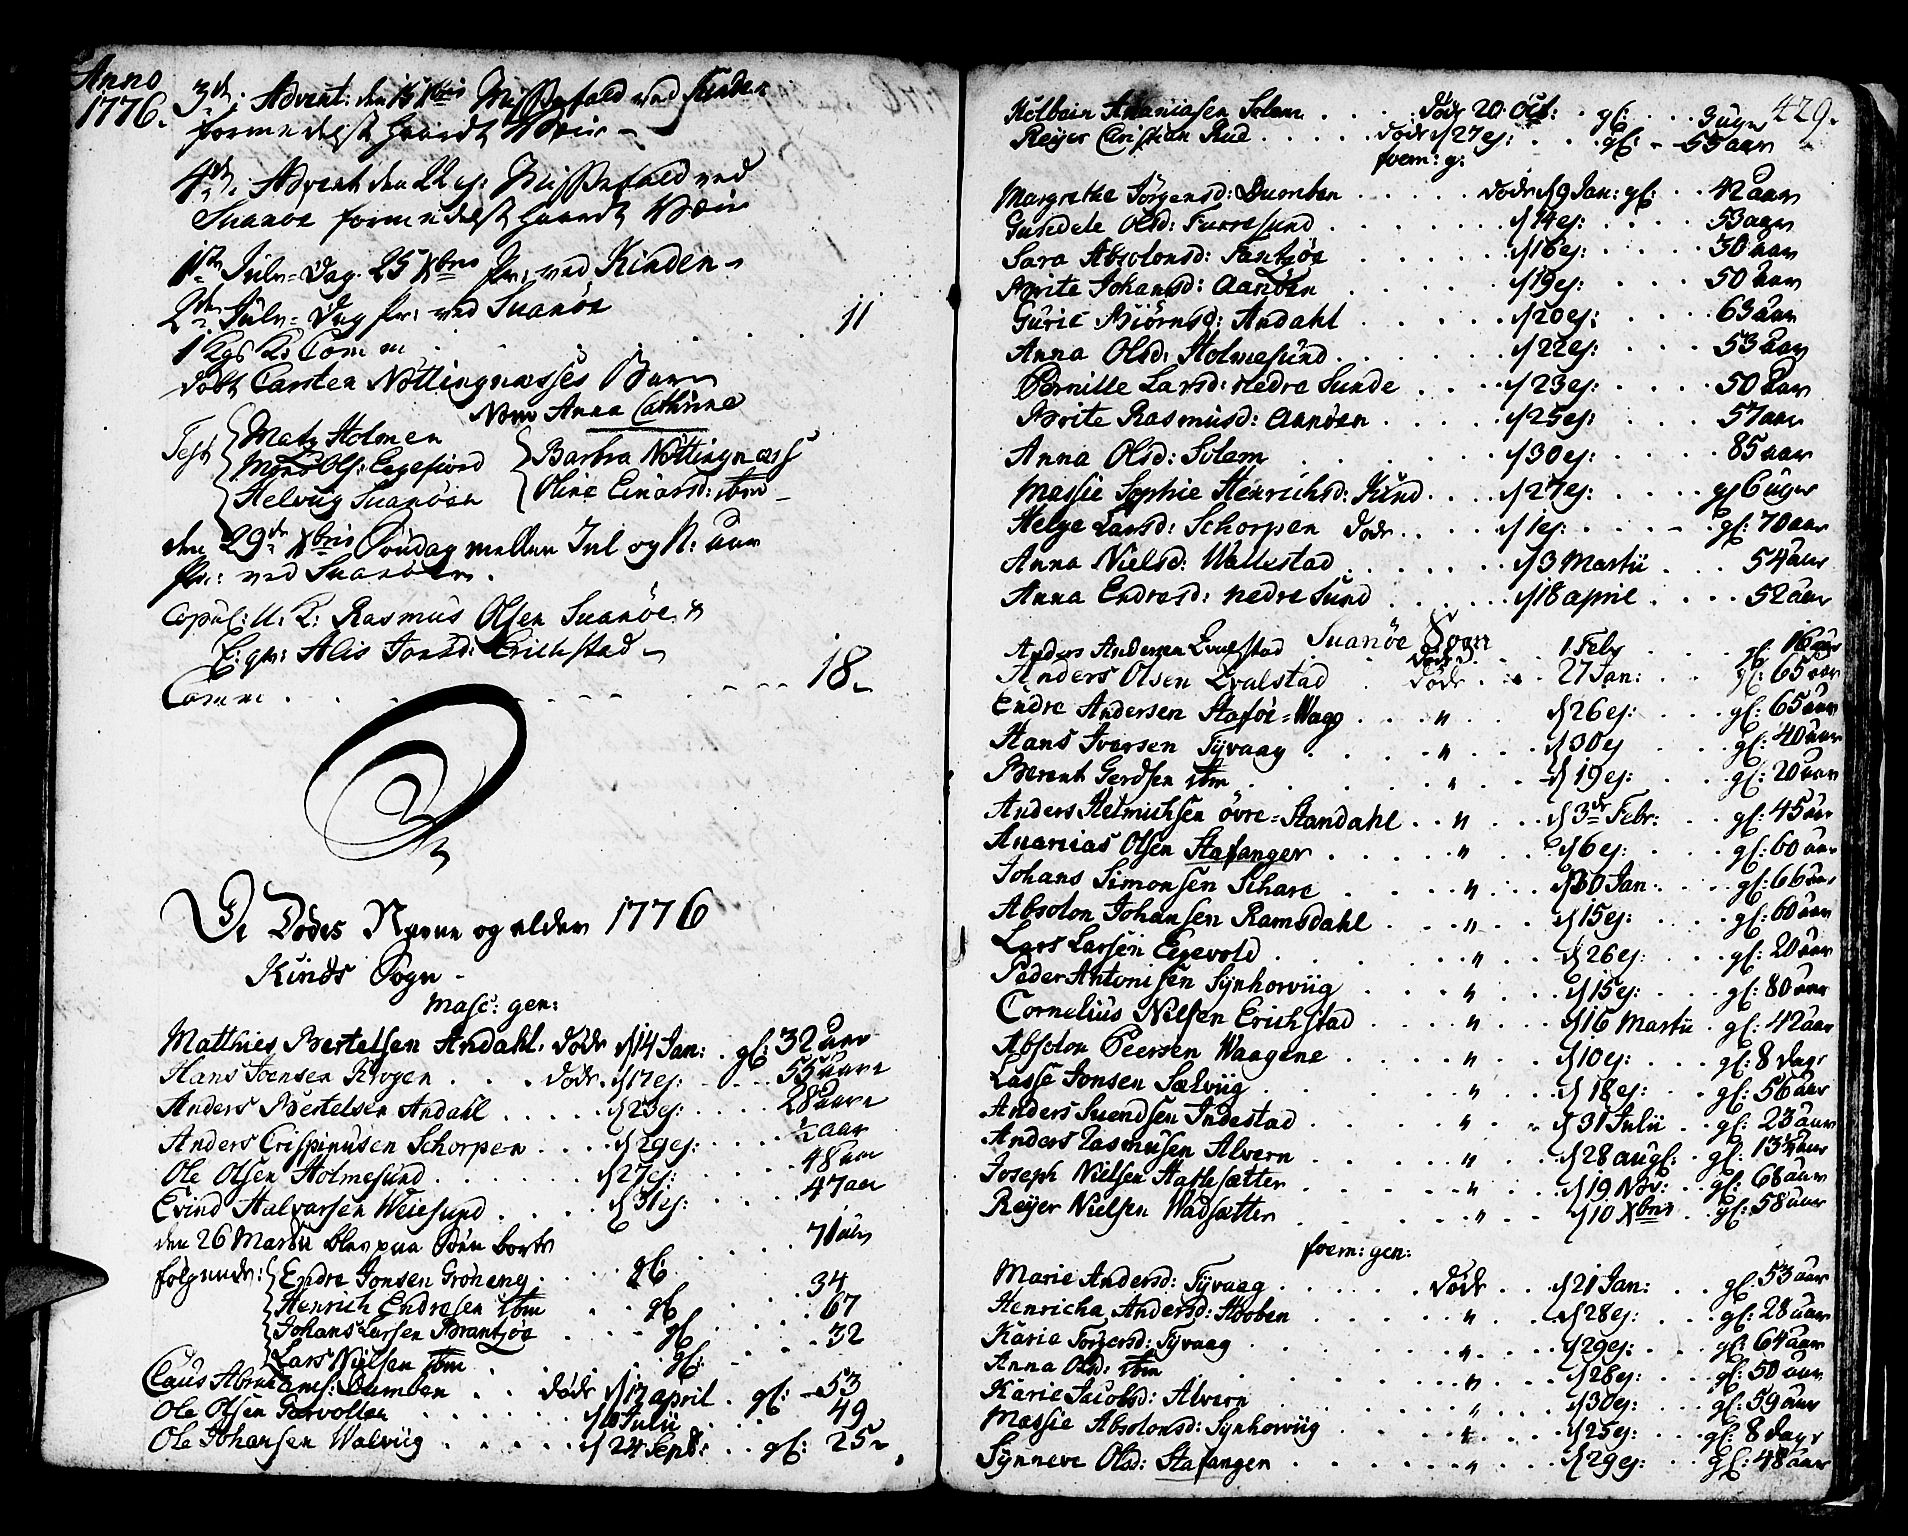 Anno
1776.
3die Advent: den 15 Xbris Messefald ved Kinden
formedelst haardt Veir
4de Advent den 22 ej: Messefald ved
Suanöe formedelst haardt Veir
1ste Jule-Dag 25 Xbris Pr: ved Kinden
2den Jule-Dag Pr: ved Suanöe
Comm . . . 11
döbt Carsten Nöttingnæsses Barn
Nom Anna Cathrine
Test
Matz Holmen
Mons Ols: Eegefiord
Helvug Suanöen
Barbra Nöttingnæss
Oline Einarsd: ibm
den 29de Xbris Söndag mellem Jul og N: Aar
Pr: ved Suanöen.
Copul: U: K: Rasmus Olsen Suanöe &
E: qv: Alis Jonsd: Erichstad
Comm . . . 18
De Dödes Navne og alder 1776
Kinds Sogn
Masc: gen:
Matthies Bertelsen Andahl. döde d 14 Jan: gl: 32 aar
Hans Joensen Krogen . . . döde d 17 ej: . . . 55 aar
Anders Bertelsen Andahl . . . d 23 ej: . . . 28 aar
Anders Crispinusen Schorpen . . . d 29 ej: . . . ½ aar
Ole Olsen Holmesund . . . d 27 ej: . . . 48 aar
Evind Halvarsen Weiesund . . . d 31 ej: . . . 47 aar
den 26 Martii blev paa Söen borte
fölgende:
Endre Jonsen Gröneng . . . gl: . . . 71 aar
Henrich Endresen ibm . . . gl: . . . 34
Johans Larsen Brantzöe . . . gl: . . . 67
Lars Nielsen ibm . . . gl: . . . 32
Claus Abrahams: Dumben . . döde d 17 april . gl: 53
Ole Olsen . . . Julii . . . 49
Ole Johansen Walviig . . . d 24 Sept: . . gl: 25
429.
Kolbein Ananiasen Solem . . . döde 20 Oct: . gl: . . . 3 uger
Reyer Cristian Rud . . . döde d 27 ej: . . . gl: 55 aar
foem: g:
Margrethe Jörgensd: Dumben . . . döde d 9 Jan: gl: . . 42 aar
Gundele Olsd: Furresund . . . d 14 ej: . . . 53 aar
Sara Absolonsd: . . . d 16 ej: . . . 30 aar
Brite Johansd: Aanöen . . . d 19 ej: . . . 50 aar
Gurie Biörnsd: Andahl . . . d 20 ej: . . . 63 aar
Anna Olsd: Holmesund . . . d 22 ej: . . . 53 aar
Pernille Larsd: Nedre Sunde . . . d 23 ej: . . . 50 aar
Brite Rasmusd: Aanöen . . . d 25 ej: . . . 57 aar
Anna Olsd: Solem . . . d 30 ej: . . . 85 aar
Massie Sophie Henrichsd: Kind . . . d 27 ej: . . . gl 6 uger
Helge Larsd: Schorpen döde . . . d 1 ej: . . . gl: 70 aar
Anna Nielsd: Wallestad . . . d 3 Martii . . . 54 aar
Anna Endresd: nedre Sund . . . d 18 april . . . 52 aar
Suanöe Sogn
Anders Andersen Qvalstad . . . döde . . 1 Febr . . . gl: 16 aar
Anders Olsen Qvalstad . . döde . . 27 Jan: . . . gl: 65 aar
Endre Andersen Staföe-Waag . . . " . . . d 26 ej: . . . gl: 65 aar
Hans Iversen Tyvaag . . . " . . . d 30 ej . . . gl: 40 aar
Berent Gerdsen ibm . . . " . . . d 19 ej: . . . gl: 20 aar
Anders Helmichsen övre-Standahl . . " . . . d 3de Febr: . . gl: 45 aar
Ananias Olsen Stafanger . . . " . . . d 6 ej: . . . gl: 60 aar
Johans Simonsen Schare . . . " . . . d 30 Jan . . . gl: 66 aar
Absolon Johansen Ramsdahl . . . " . . . d 15 ej: . . . gl: 60 aar
Lars Larsen Egevold . . . " . . . d 26 ej: . . . gl: 20 aar
Peder Antonisen Synhorviig . . . " . . . d 15 ej: . . . gl: 80 aar
Cornelius Nilsen Erichstad . . . " . . . d 16 Martii . gl: 42 aar
Absolon Peersen Waagene . . . " . . . d 10 ej: . . . gl: 8 dage
Lasse Jonsen Sælviig . . . " . . . d 18 ej: . . . gl: 56 aar
Anders Suendsen Indestad . . . " . . . d 31 Julii . . gl: 23 aar
Anders Rasmusen Alvern . . . " . . . d 28 aug: . gl: 13½ aar
Joseph Nielsen Haflesætter . . . " . . . d 19 Nov: . . gl: 68 aar
Reyer Nielsen Wadsætter . . . " . . . d 10 Xbris . . gl: 58 aar
foem: gen:
Marie Andersd: Tyvaag . . . döde . . d 21 Jan: . . . gl: 53 aar
Henricha Andersd: . . . " . . . d 28 ej: . . . gl: 28 aar
Karie Torgersd: Tyvaag . . . " . . . d 29 ej: . . . gl: 64 aar
Anna Olsd: ibm . . . " . . . d 28 ej: . . . gl: 50 aar
Karie Jacobsd: Alvern . . . " . . . d 30 ej: . . . gl: 59 aar
Massie Absolonsd: Synhorviig . . . " . . . d 25 ej: . . . gl: 8 dage
Synneve Olsd: Stafangen . . . " . . . d 29 ej: . . . gl: 48 aar